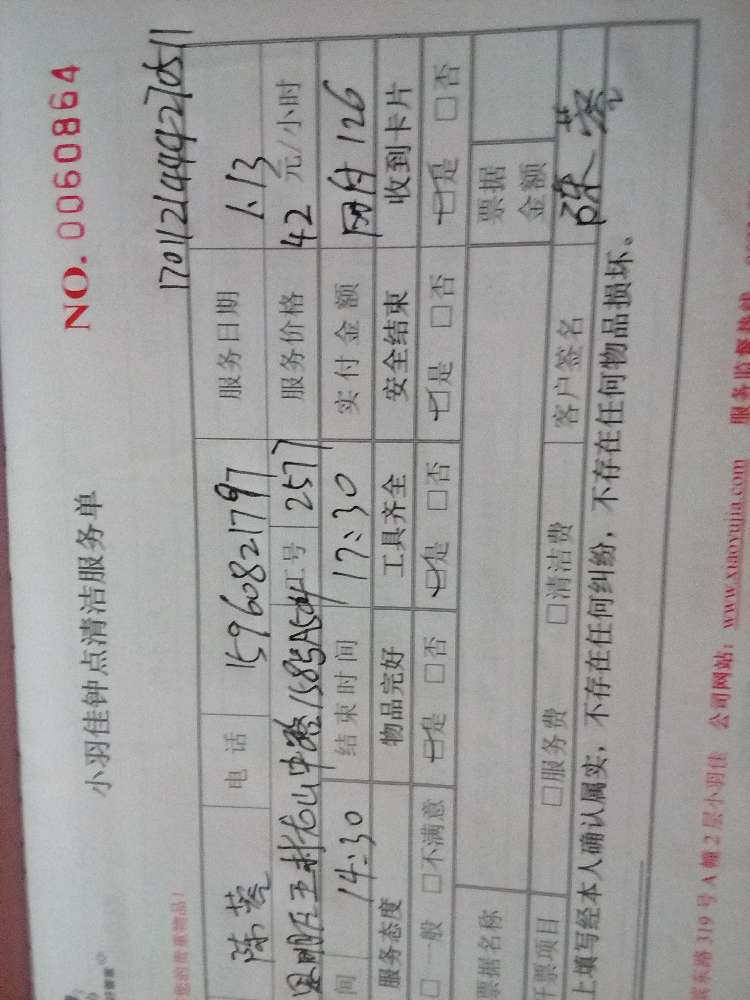 小羽佳钟点清洁服务单
NO. 0060864
170112144427051
电话 15960821797 服务日期 1.13
工号 2577 服务价格 42 元/小时
14:30 结束时间 17:30 实付金额 网付 126
服务态度 物品完好 工具齐全 安全结束 收到卡片
□一般 □不满意 □是 □否 □是 □否 □是 □否 □是 □否
票据名称 票据金额
开票项目 □服务费 □清洁费 客户签名
上填写经本人确认属实，不存在任何纠纷，不存在任何物品损坏。
乐路 319 号 A 幢 2 层小羽佳 公司网站：www.xiaoyujia.com